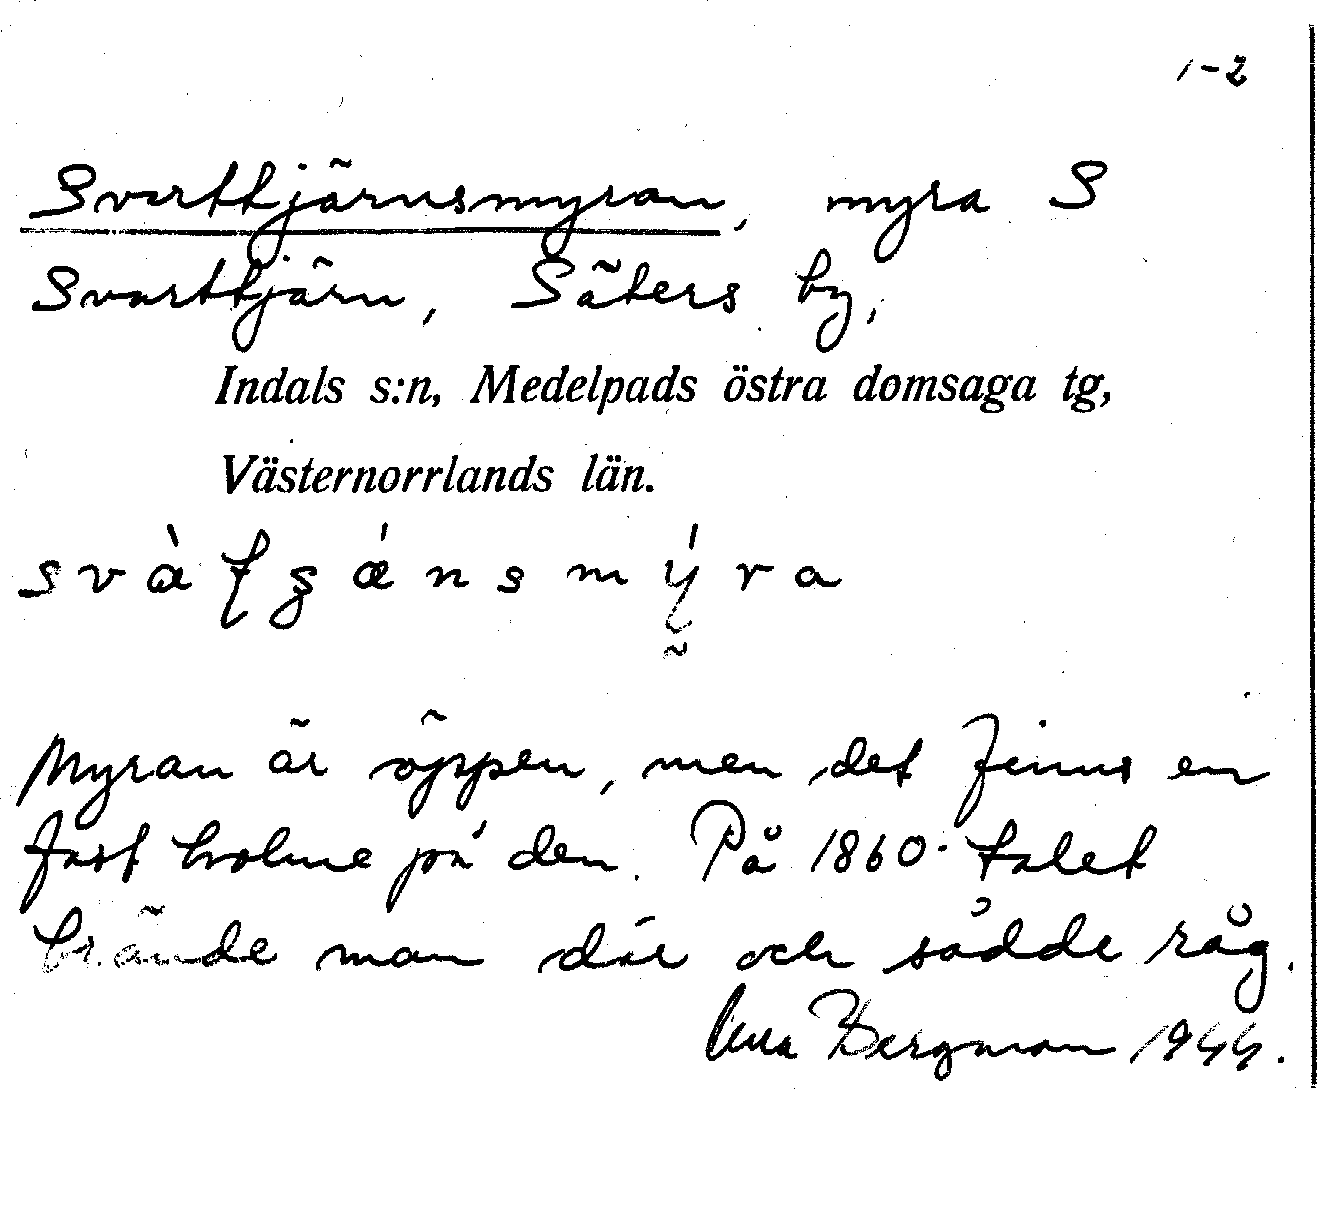 1-2
Svarttjärnsmyran, myra S
Svarttjärn, Säters by,
Indals s:n, Medelpads östra domsaga tg,
Västernorrlands län.
Myran är öppen, men det finns en
fast holme på den. På 1860-talet
brände man där och sådde råg.
Bergman 1944.